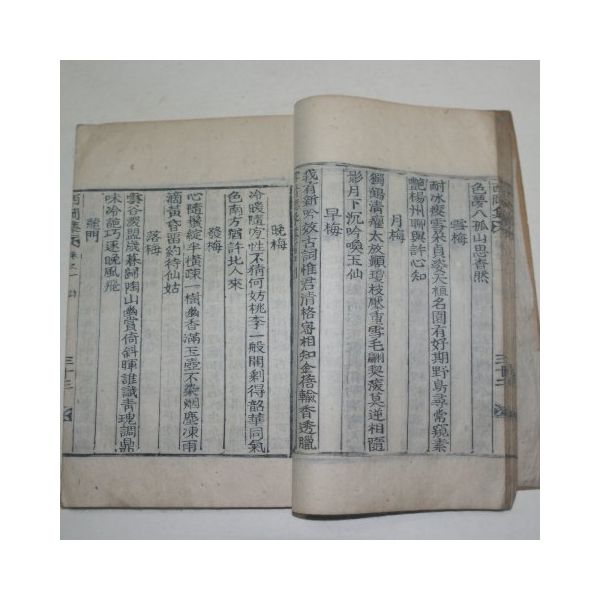 色夢入孤山思杳然
雪梅
耐氷瘦雪朶貞姿天植名園有好期野鳥尋常窺素
艶楊州聊與許心知
月梅
獨鶴淸癯太放顚瓊枝壓重雪毛翩契疲莫逆相隨
影月下沉吟喚玉仙
早梅
我有新吟效古詞惟君淸格寄相知金蓓輸香透臘
晩梅
冷暖隨宜性不猜何妨桃李一般開剩得韶華同氣
色南方猶許北人來
發梅
心隨機綻半橫疎一樹幽香滿玉壺不染烟塵凍雨
滴黃昏留約待仙姑
落梅
雲谷深盟歲暮歸陶山幽賞倚斜暉誰識靑瑰調鼎
味冷施巧逐晩風飛
龍門
三十二
三十三